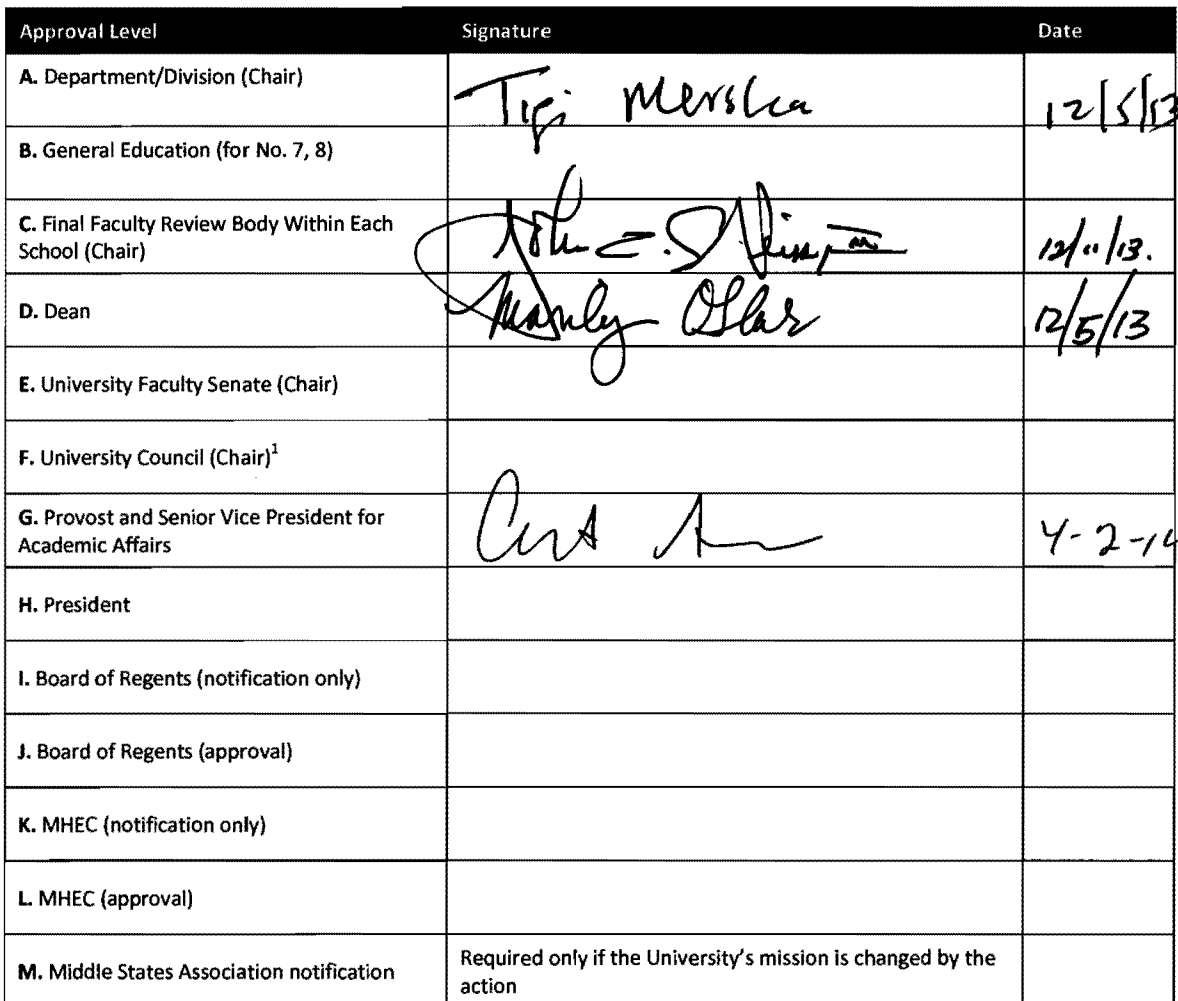 Approval Level Signature Date
A. Department/Division (Chair) Tigi Mersha 12/5/13
B. General Education (for No. 7, 8)
C. Final Faculty Review Body Within Each
School (Chair) John 12/11/13.
D. Dean 12/5/13
E. University Faculty Senate (Chair)
F. University Council (Chair)¹
G. Provost and Senior Vice President for
Academic Affairs 4-2-14
H. President
I. Board of Regents (notification only)
J. Board of Regents (approval)
K. MHEC (notification only)
L. MHEC (approval)
M. Middle States Association notification Required only if the University's mission is changed by the
action